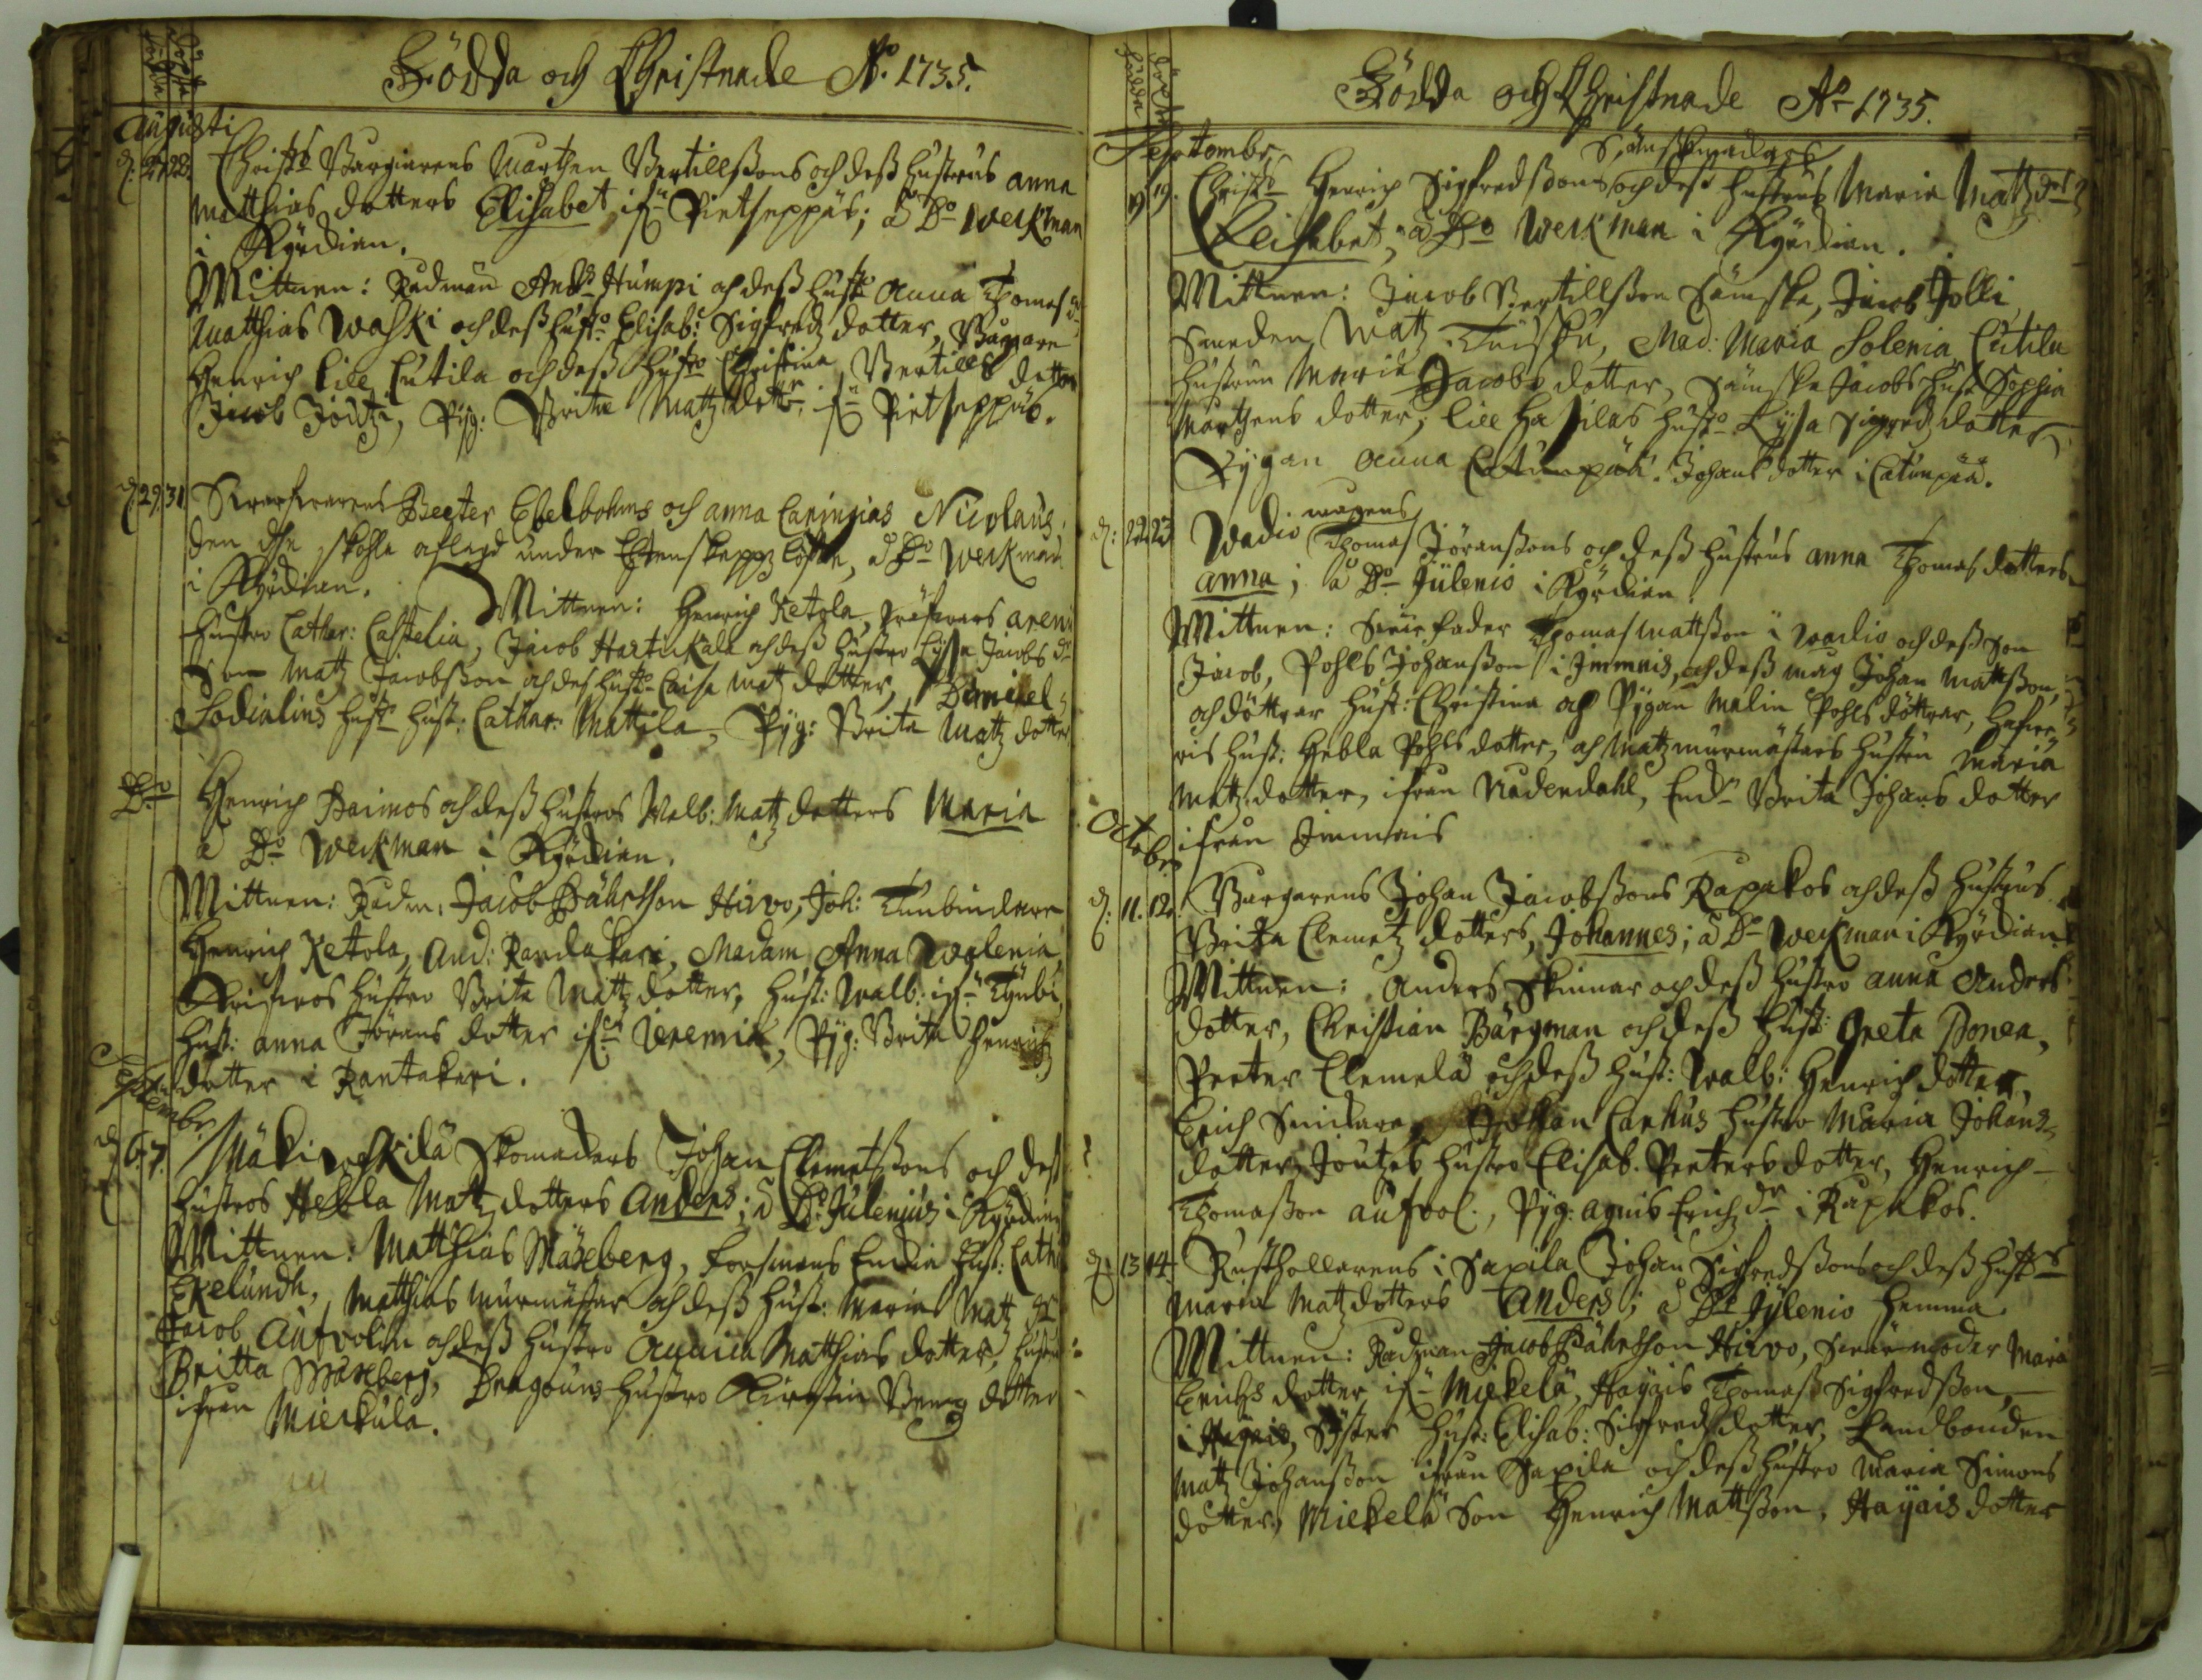 Födda och Christnade Ao. 1735.
Födda döpta
Augusti
d. 27. 28. Christs Borgiarens Marthen Bertillßons och deß hustrus anna
Matthias dotters Elisabet ifn Pietseppäs; a Do Weckman
i Kyrckian.
Wittnen: Radman Ands Humpi och deß hustr Anna Thomas dr
Matthias Waski och deß hustro Elisab: Sigfredz dotter, Bagare
Henrich Lill Eutila och deß hustro Christina Bertills dotter
Jacob Joutzi, Pyg: Brita Matz dotter ifn Pietseppäs.
d. 29. 31. Beeter Ebelbohms och anna Caringias Nicolaus,
den under, a Do Weckman
i Kyrckian. Wittnen: Henrich Ketola, arena
hustro Cathar: Castelia, Jacob Hartikala och deß hustro Lisa Jacobs dr
Son Matz Jacobßon och deß hustro Caisa Matz dotter,
Sodialins hust: Cathar: Mattila, Pyg: Brita Matz dotter
Do Henrich Raimos och deß hustros Walb: Matz dotters Maria
a Do Weckman i Kyrckian.
Wittnen: Radm: Jacob Pährßon Hirvo, Joh: Tunbindare
Henrich Ketola, And: Randakari, Madam Anna Wolenia,
hustro Brita Matz dotter, hust: Walb: ifn Tynbi,
hust: anna Jörans dotter ifn Jeremia, Pyg: Brita Henrichz
dotter i Rantakari.
Septembr.
d. 6. 7. Mäki Skomakars Johan Clemetßons och deß
hustros Hebla Matz dotters Anders; a Do Julenius i Kyrckian
Wittnen: Matthias Mäxeberg, Forsmans Enkia hust: Cath:
Ekelundh, Matthias murmästar och deß hust: Maria Matz dr
Jacob Aufvolin och deß hustro Annica Matthias dotter, hustru
Britta Mäxberg, Dragouns hustro Kirstin Bengz dotter
ifran Mierkula.
Födda och Christnade Ao 1735.
födda döpta
Septembr.
19. 19. Christs Henrich Sigfredßons Sämskmakars och deß hustrus Maria Matz drs
Elisabet, a Do Weckman i Kyrckian.
Wittnen: Jacob Bertillßon Sämska, Jacob Jolli,
Smeden Matz Tuiskú, Mad: Maria Solenia, Eutila
hustrun Maria Jacobs dotter, Sämska Jacobs hust Sophia
Mårtens dotter, Lill Hakilas hustro Lysa Sigfredz dotter,
Pygan Anna Johans dotter i Catunpää.
d. 22. 23. Wadio magens Thomas Jöranßons och deß hustrus anna Thomas dotters
anna; a Do Julenio i Kyrckian.
Wittnen: Swärfader Thomas Mattßon i Wadio och deß Son
Jacob, Pohls Johanßon i Immais, och deß mag Johan Mattßon,
och döttrar hust: Christina och Pygan Malin Pohls döttrar,
ris hust: Hebla Pohls dotter, och Matz murmästars hustru Maria
Matz dotter, ifran Nådendahl, Brita Johans dotter
ifran Immais
Octobr.
d. 11. 12. Borgarens Johan Jacobßons Rapakos och deß hustrus
Brita Clemetz dotters, Johannes; a Do Weckman i Kyrckian
Wittnen: Anders Skinnar och deß hustro anna Anders
dotter, Christian Bärgman och deß hust: Greta Ponea,
Peeter Clemelä och deß hust: Walb: Henrich dotter,
Erich Snickare, Johan Carhus hustro Maria Johans
dotter, Joutzes hustro Elisab. Peters dotter, Henrich
Thomaßon aufvol., Pyg: Agnis Erichz dr i Rapakos.
d. 13. 14. Rusthollarens i Saxila Johan Sigfredßons och deß hustrs
Maria Matz dotters Anders; a Do Jylenio hemma.
Wittnen: Radman Jacob Pährßon Hirvo, Swärmoder Maria
Erichs dotter ifn Miekelä, Hayais Thomaß Sigfredßon
i Hayais, Syster hust: Elisab: Sigfredz dotter, Landbonden
Matz Johanßon ifran Saxila och deß hustro Maria Simons
dotter, Miekelä Son Henrich Mattßon, Hayais dotter